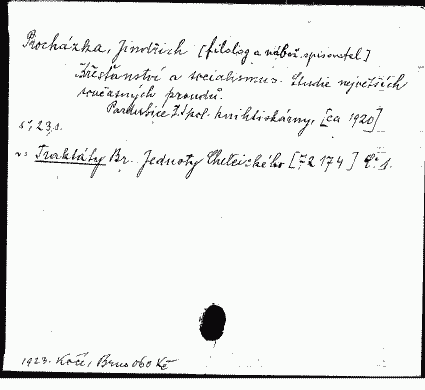 Procházka, Jindřich [filolog a nábož. spisovatel]
Křesťanství a socialismus. Studie největších
současných proudů.
Pardubice, Z. spol. knihtiskárny, [ca 1920]
8°, 23 s.
v: Traktáty Br. Jednoty Chelčického [72174] č. 1.
1923. Kočí, Brno 0.60 Kč